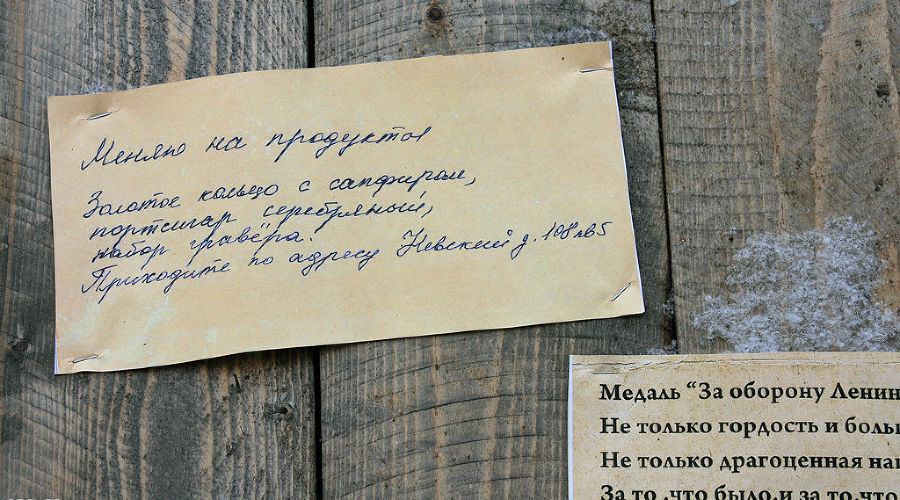 Меняю на продукты
Золотое кольцо с сапфиром,
портсигар серебряный,
набор гравёра.
Приходите по адресу Невский д. 108 кв5
Медаль “За оборону Ленин
Не только гордость и боль
Не только драгоценная на
За то ,что было,и за то,что